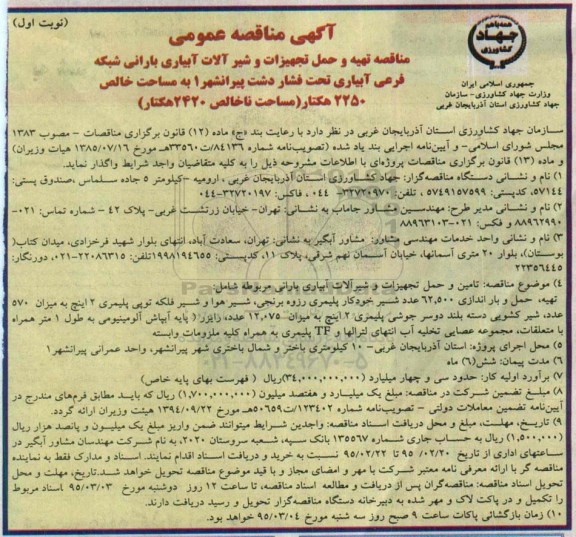 (نوبت اول)
آگهی مناقصه عمومی
همه با هم
جهاد
کشاورزی
مناقصه تهیه و حمل تجهیزات و شیر آلات آبیاری بارانی شبکه
فرعی آبیاری تحت فشار دشت پیرانشهر۱ به مساحت خالص
۲۲۵۰ هکتار(مساحت ناخالص ۲۴۲۰هکتار)
جمهوری اسلامی ایران
وزارت جهاد کشاورزی- سازمان
جهاد کشاورزی استان آذربایجان غربی
سازمان جهاد کشاورزی استان آذربایجان غربی در نظر دارد با رعایت بند «ج» ماده (۱۲) قانون برگزاری مناقصات - مصوب ۱۳۸۳
مجلس شورای اسلامی- و آیین‌نامه اجرایی بند یاد شده (تصویب‌نامه شماره ۸۴۱۳۶/ت۳۳۵۶۰هـ مورخ ۱۳۸۵/۰۷/۱۶ هیات وزیران)
و ماده (۱۳) قانون برگزاری مناقصات پروژه‌ای با اطلاعات مشروحه ذیل را به کلیه متقاضیان واجد شرایط واگذار نماید.
۱) نام و نشانی دستگاه مناقصه‌گزار: جهاد کشاورزی استان آذربایجان غربی ، ارومیه -کیلومتر ۵ جاده سلماس ،صندوق پستی:
۵۷۱۴۴، کدپستی: ۵۷۴۹۱۵۷۵۹۹ ، تلفن: ۳۲۷۲۰۹۷۰-۰۴۴ ، فاکس: ۳۲۷۲۰۱۹۷-۰۴۴
۲) نام و نشانی مدیر طرح: مهندسین مشاور جاماب به نشانی: تهران- خیابان زرتشت غربی- پلاک ۴۲ - شماره تماس: ۰۲۱-
۸۸۹۶۲۹۹۰ و فکس: ۰۲۱-۸۸۹۶۳۱۰۳
۳) نام و نشانی واحد خدمات مهندسی مشاور: مشاور آبگیر به نشانی: تهران، سعادت آباد، انتهای بلوار شهید فرخزادی، میدان کتاب(
بوستان)، بلوار ۲۰ متری آسمانها، خیابان آسمان نهم شرقی، پلاک ۱۱، کدپستی: ۱۹۹۸۱۹۴۶۵۵تلفن: ۲۲۰۸۶۳۱۵-۰۲۱، دورنگار:
۲۲۳۵۶۴۴۵
۴) موضوع مناقصه: تامین و حمل تجهیزات و شیرآلات آبیاری بارانی مربوطه شامل:
تهیه، حمل و بار اندازی ۶۲,۵۰۰ عدد شیر خودکار پلیمری رزوه برنجی، شیر هوا و شیر فلکه توپی پلیمری ۲ اینچ به میزان ۵۷۰
عدد، شیر کشویی دسته بلند دوسر جوشی پلیمری ۲ اینچ به میزان ۱۲,۰۷۵ عدد، رایزر( پایه آبپاش آلومینیومی به طول ۱ متر همراه
با متعلقات، مجموعه عصایی تخلیه آب انتهای لترالها و TF پلیمری به همراه کلیه ملزومات وابسته
۵) محل اجرای پروژه: استان آذربایجان غربی- ۱۰ کیلومتری باختر و شمال باختری شهر پیرانشهر، واحد عمرانی پیرانشهر۱
۶) مدت پیمان: شش(۶) ماه
۷) برآورد اولیه کار: حدود سی و چهار میلیارد (۳۴,۰۰۰,۰۰۰,۰۰۰)ریال ( فهرست بهای پایه خاص)
۸) مبلغ تضمین شرکت در مناقصه: مبلغ یک میلیارد و هفتصد میلیون (۱,۷۰۰,۰۰۰,۰۰۰) ریال که باید مطابق فرم‌های مندرج در
آیین‌نامه تضمین معاملات دولتی – تصویب‌نامه شماره ۱۲۳۴۰۲/ت۵۰۶۵۹هـ مورخ ۱۳۹۴/۰۹/۲۲ هیئت وزیران ارائه گردد.
۹) تاریخ، مهلت، مبلغ و محل دریافت اسناد مناقصه: واجدین شرایط میتوانند ضمن واریز مبلغ یک میلیون و پانصد هزار ریال
(۱,۵۰۰,۰۰۰) ریال به حساب جاری شماره ۱۳۵۵۶۷ بانک سپه، شعبه سروستان ۲۰۲۰، به نام شرکت مهندسان مشاور آبگیر در
ساعتهای اداری از تاریخ ۹۵/۰۲/۲۰ تا ۹۵/۰۲/۲۲ نسبت به خرید و دریافت اسناد اقدام نمایند. اسناد و مدارک فقط به نماینده
مناقصه گر با ارائه معرفی نامه معتبر شرکت با مهر و امضای مجاز و با قید موضوع مناقصه تحویل خواهد شد.تاریخ، مهلت و محل
تحویل اسناد مناقصه: مناقصه‌گران پس از دریافت و مطالعه اسناد مناقصه، تا ساعت ۱۲ روز دوشنبه مورخ ۹۵/۰۳/۰۳ اسناد مربوط
را تکمیل و در پاکت لاک و مهر شده به دبیرخانه دستگاه مناقصه‌گزار تحویل و رسید دریافت دارند.
۱۰) زمان بازگشائی پاکات ساعت ۹ صبح روز سه شنبه مورخ ۹۵/۰۳/۰۴ خواهد بود.